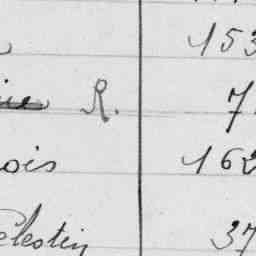 153
R. 7
ois 162
elestin 37